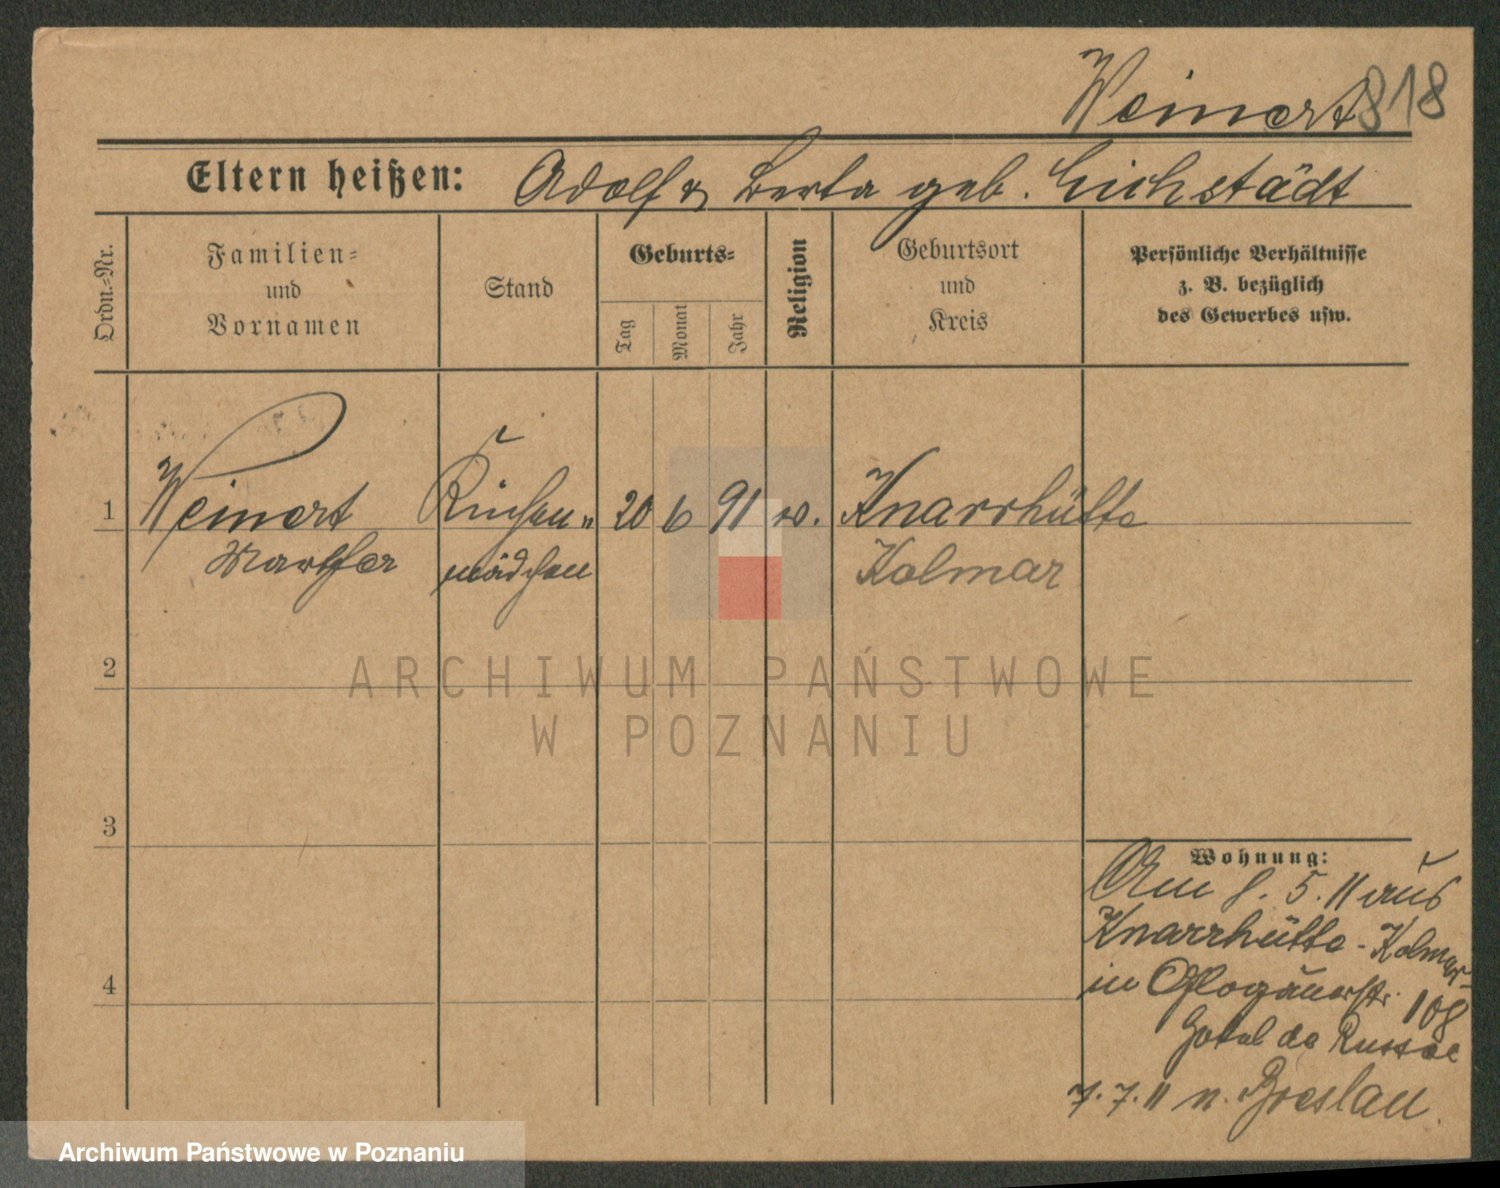 Weinert 818
Eltern heißen: Adolf u Berta geb. Eichstädt
Ordn.-Nr.
Familien-
und
Vornamen
Stand
Geburts-
Tag
Monat
Jahr
Religion
Geburtsort
und
Kreis
Persönliche Verhältnisse
z. B. bezüglich
des Gewerbes usw.
1 Weinert Küchen- 20 6 91 ev. Knarrhütte
Martha mädchen Kolmar
2
ARCHIWUM PAŃSTWOWE
W POZNANIU
3
Wohnung:
Am 8. 5. 11 aus
Knarrhütte - Kolmar
in Glogauerstr. 108
Hotel de Russie
4
7. 7. 11 n. Breslau.
Archiwum Państwowe w Poznaniu